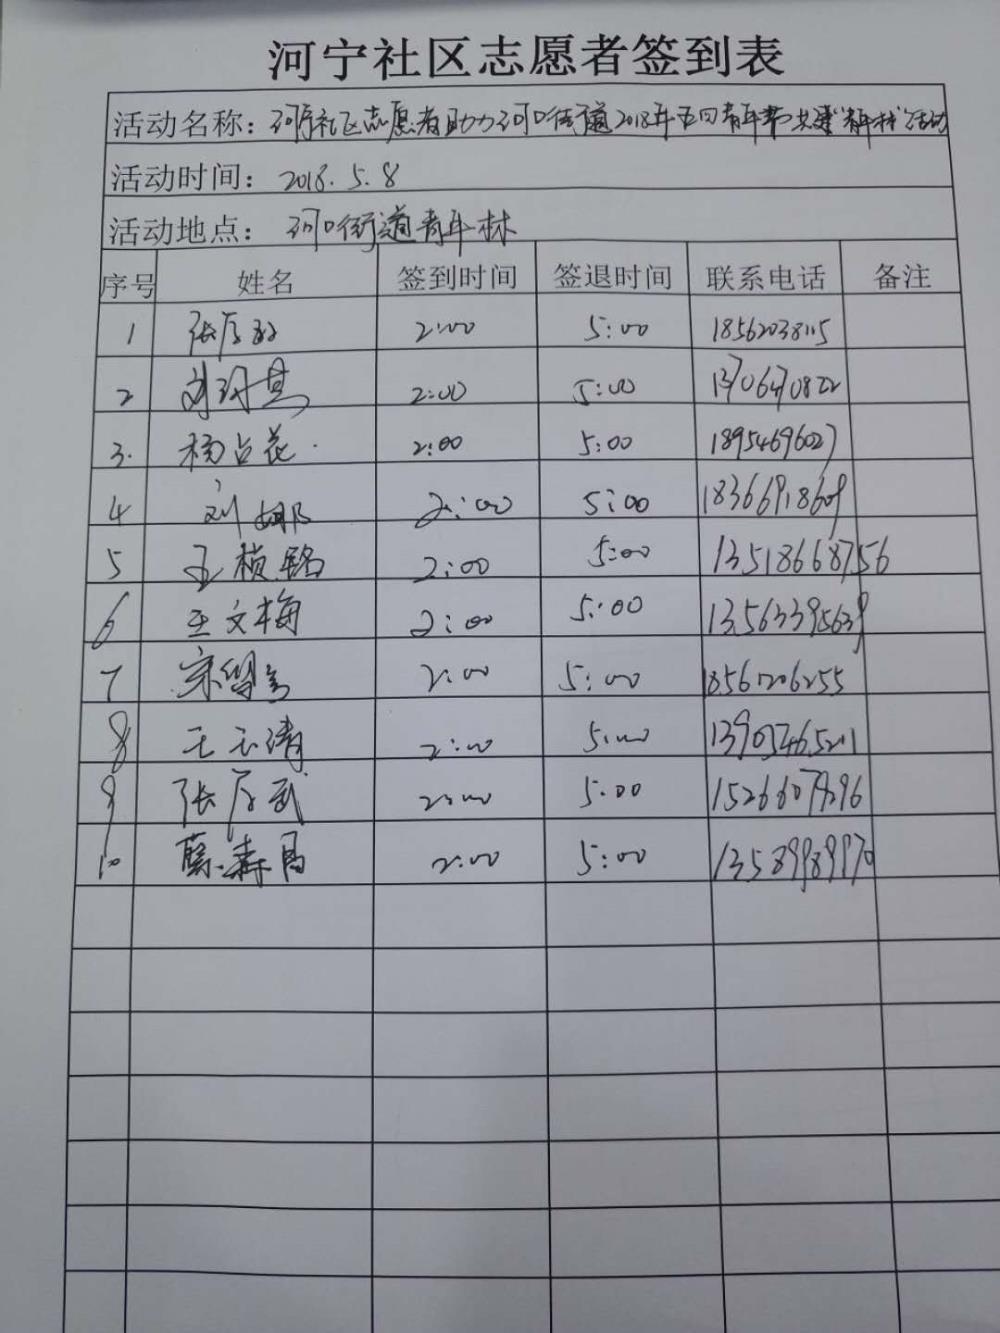 河宁社区志愿者签到表
活动名称：河宁社区志愿者助力河口街道2018年五四青年节共建"青年林"活动
活动时间：2018.5.8
活动地点：河口街道青年林
序号 姓名 签到时间 签退时间 联系电话 备注
1 张 2:00 5:00 18562038115
2 刘 2:00 5:00 13706470822
3. 杨占花 2:00 5:00 18954696027
4 刘娜 2:00 5:00 18366918609
5 王桢铭 2:00 5:00 13518668756
6 王文梅 2:00 5:00 13563395639
7 宋 2:00 5:00 18561206255
8 王玉清 2:00 5:00
9 张 武 2:00 5:00
10 森昌 2:00 5:00 13589989970